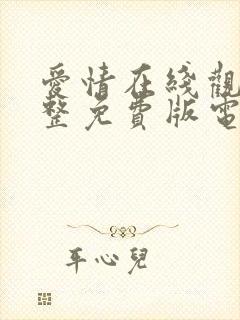 愛情在綫觀
整免費版電
平心兒